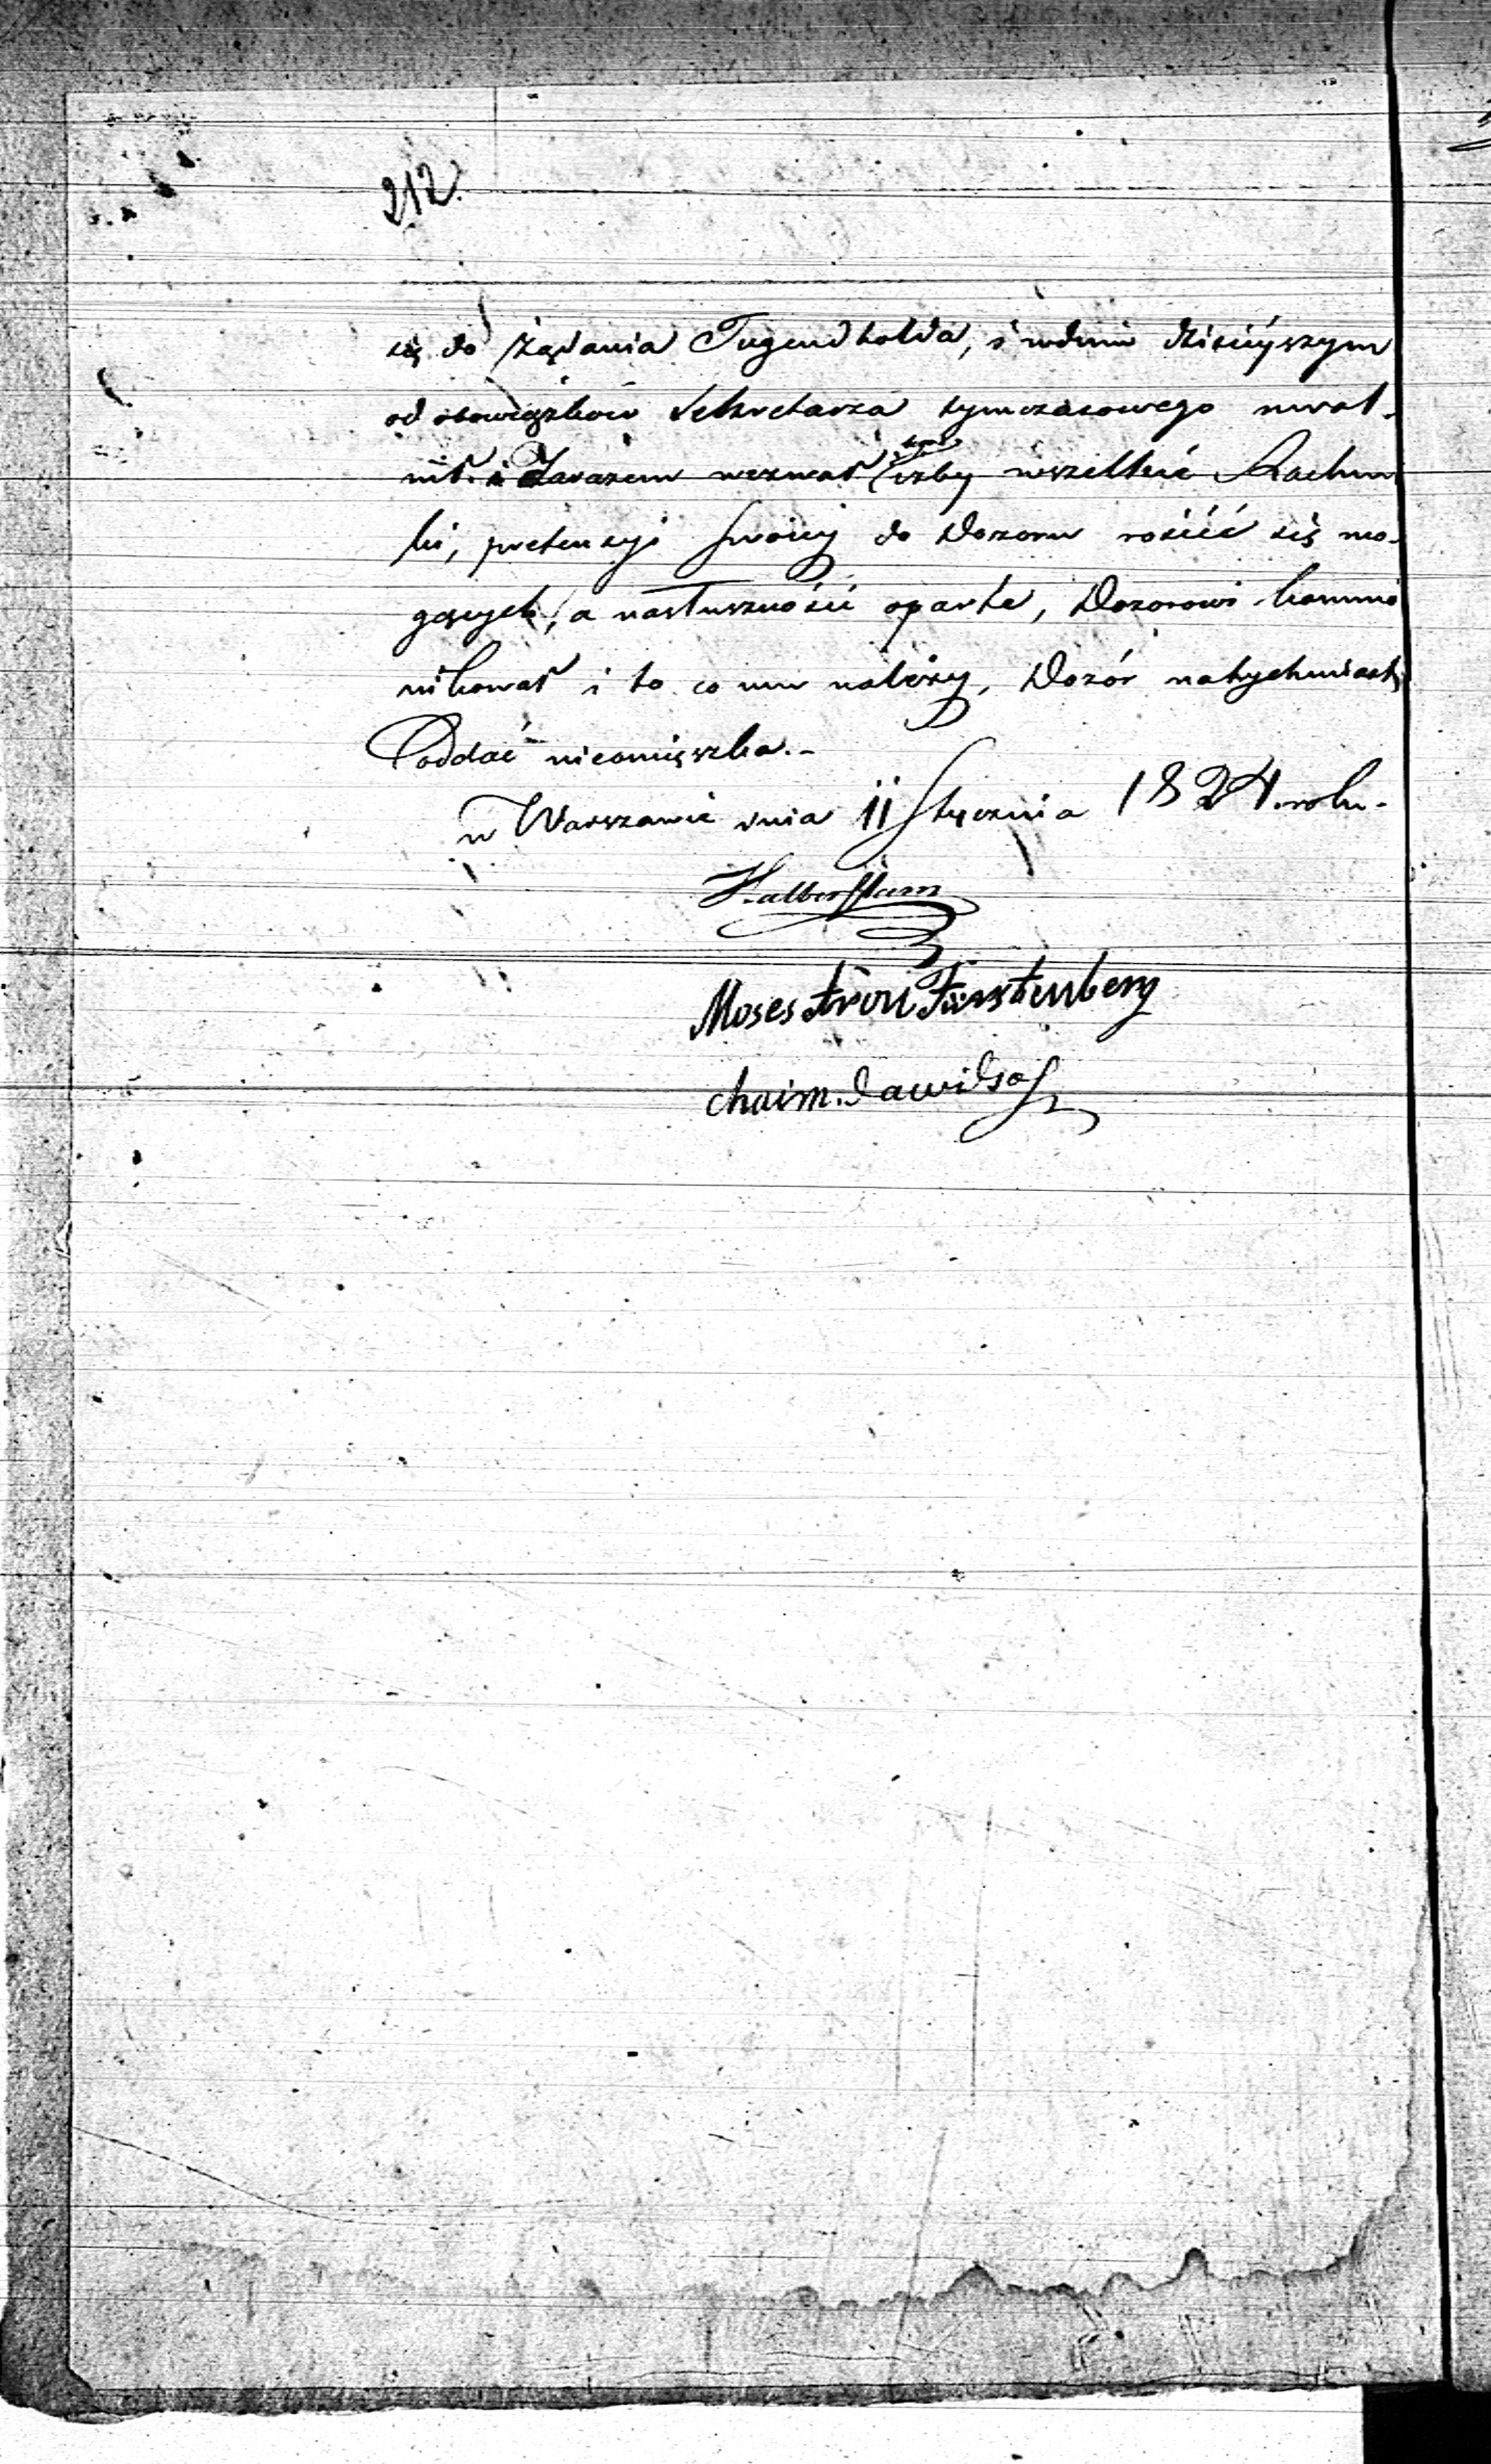 212.
się do żądania Tugendholda, i w dniu dzisieyszym
od obowiązków Sekretarza tymczasowego uwol-
nił. i Zarazem wezwał iżby wszelkie Rachun
ki, pretensyi swoiey do Dozoru rościć się mo-
gących, a na słuszności oparte, Dozorowi kommu
nikował i to co mu należy, Dozór natychmiast
oddać nieomięszka.-
w Warszawie dnia 11 Stycznia 1824. roku.
Halberstam
Moses Aron Fürstenberg
chaim. dawidsohn